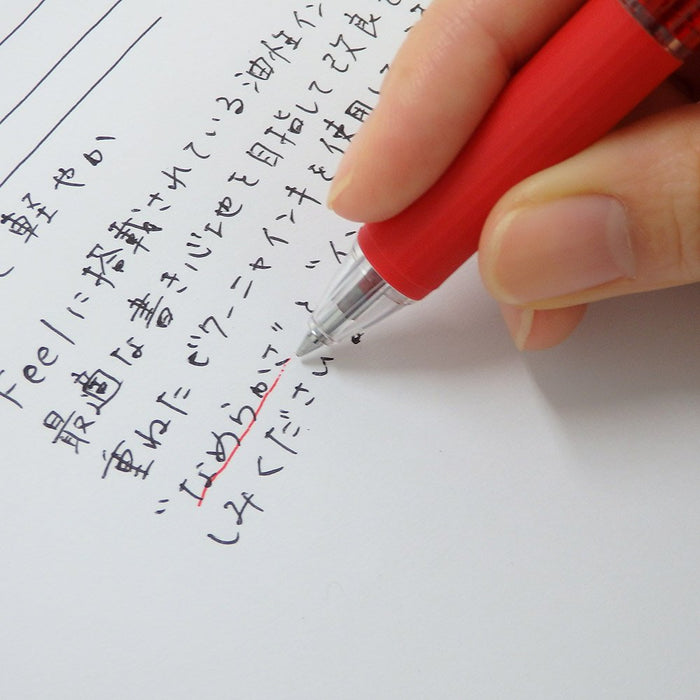 軽やか
Feelに搭載されている油性イン
最適な書き心地を目指して改良
重ねたビクーニャインキを使用し
"なめらかさ"
しみください